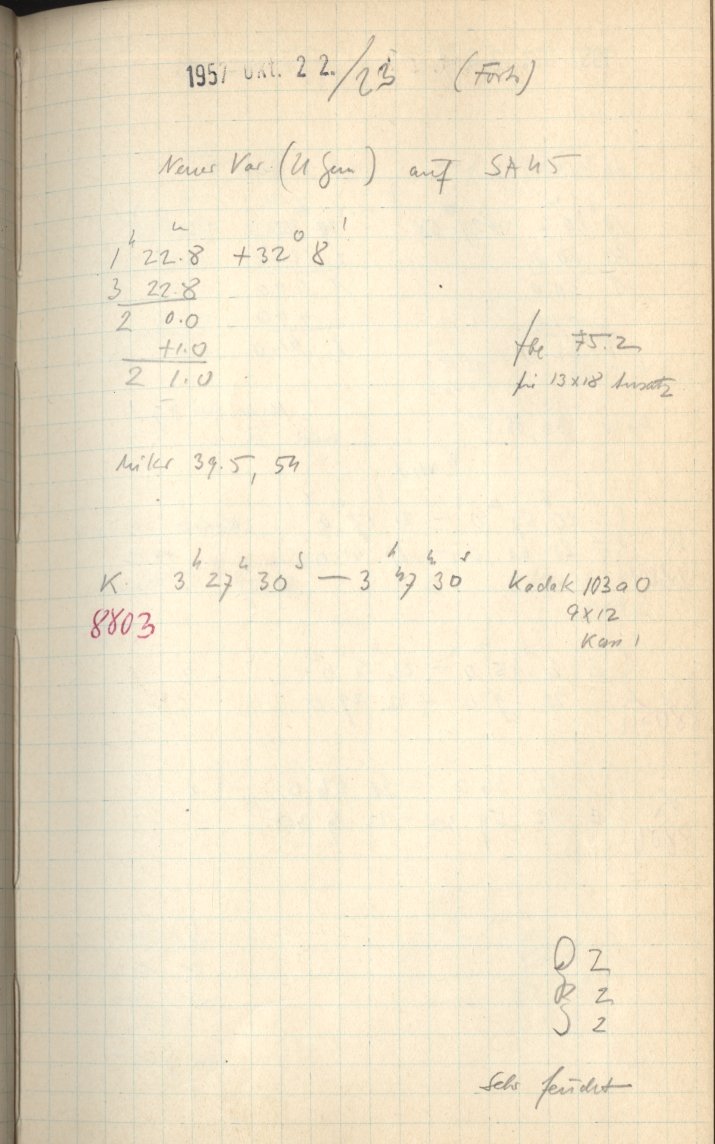 1957 Okt. 22./23 (Forts)
Neuer Var. (U Gem) auf SA 45
1ʰ 22.8 +32° 8'
3 22.8
2 0.0
+1.0
2 1.0
75.2
für 13x18 Ansatz
Mikr 39.5, 54
K. 3ʰ 27ᵐ 30ˢ — 3ʰ 47ᵐ 30ˢ Kodak 103aO
8803
9x12
Kass 1
D 2
R 2
S 2
Sehr feucht